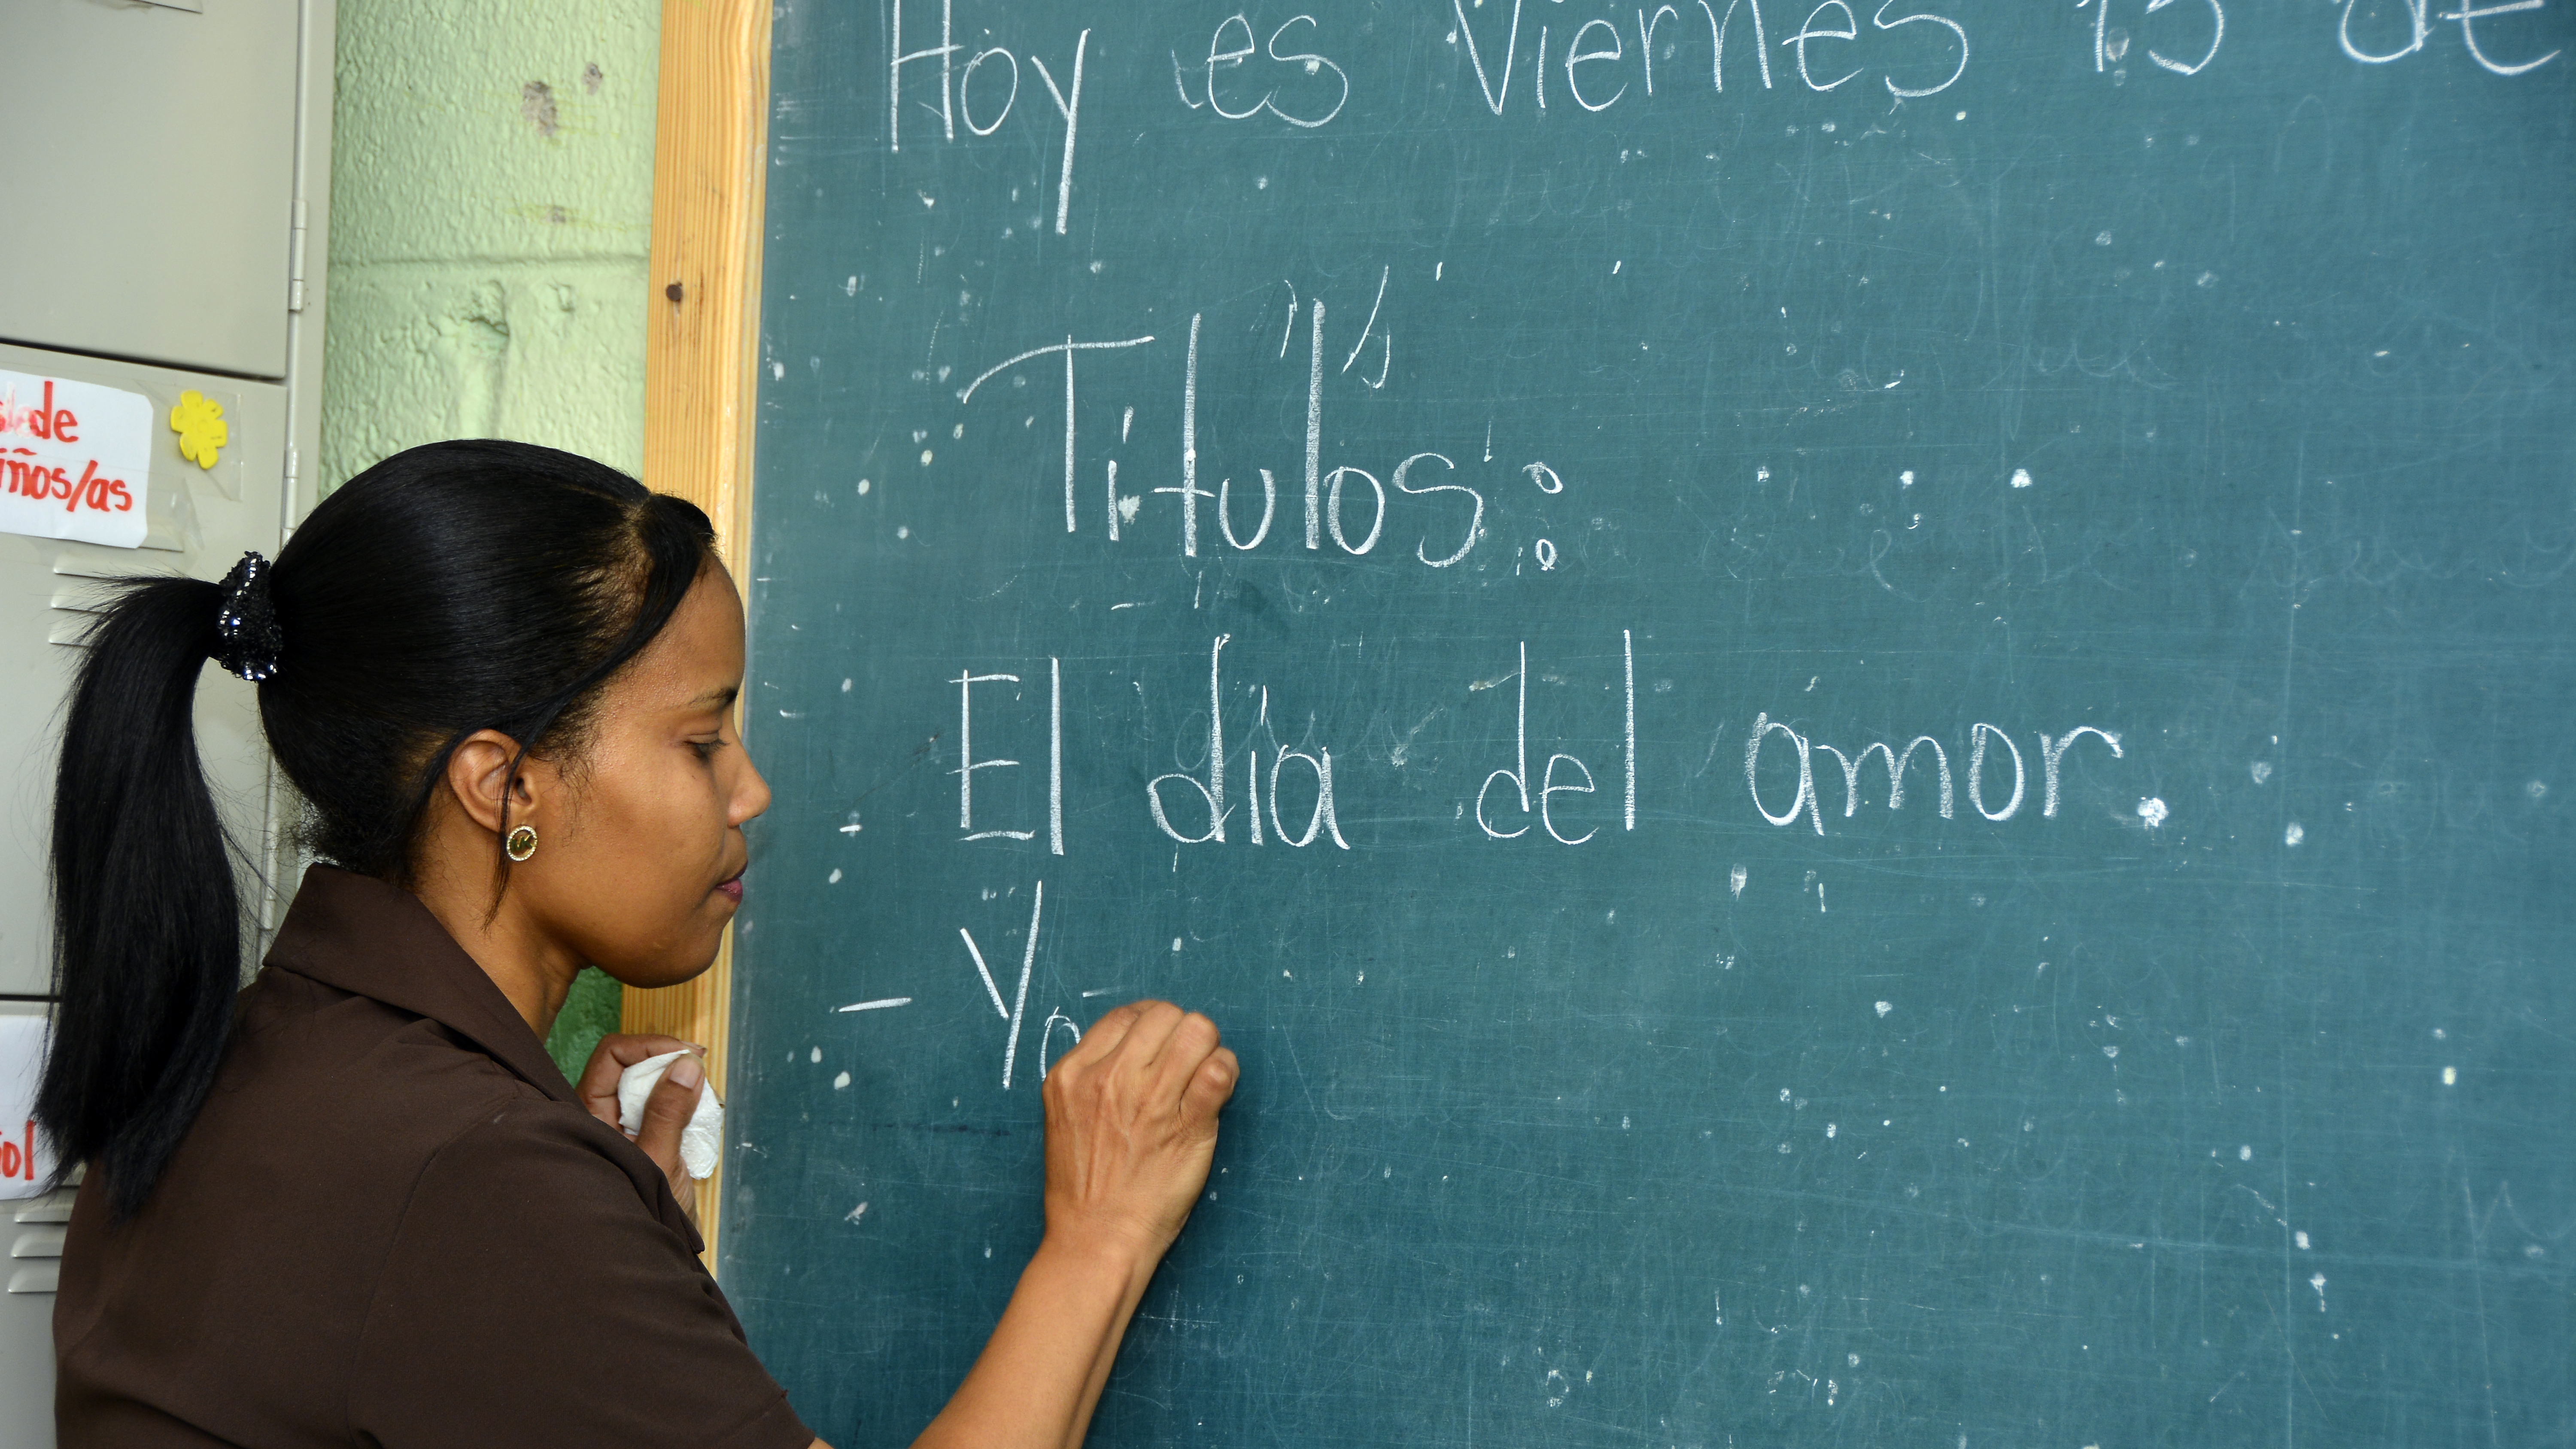 Hoy es Viernes 13 de
Títulos:
- El día del amor.
- Yo
de
iños/as
ol